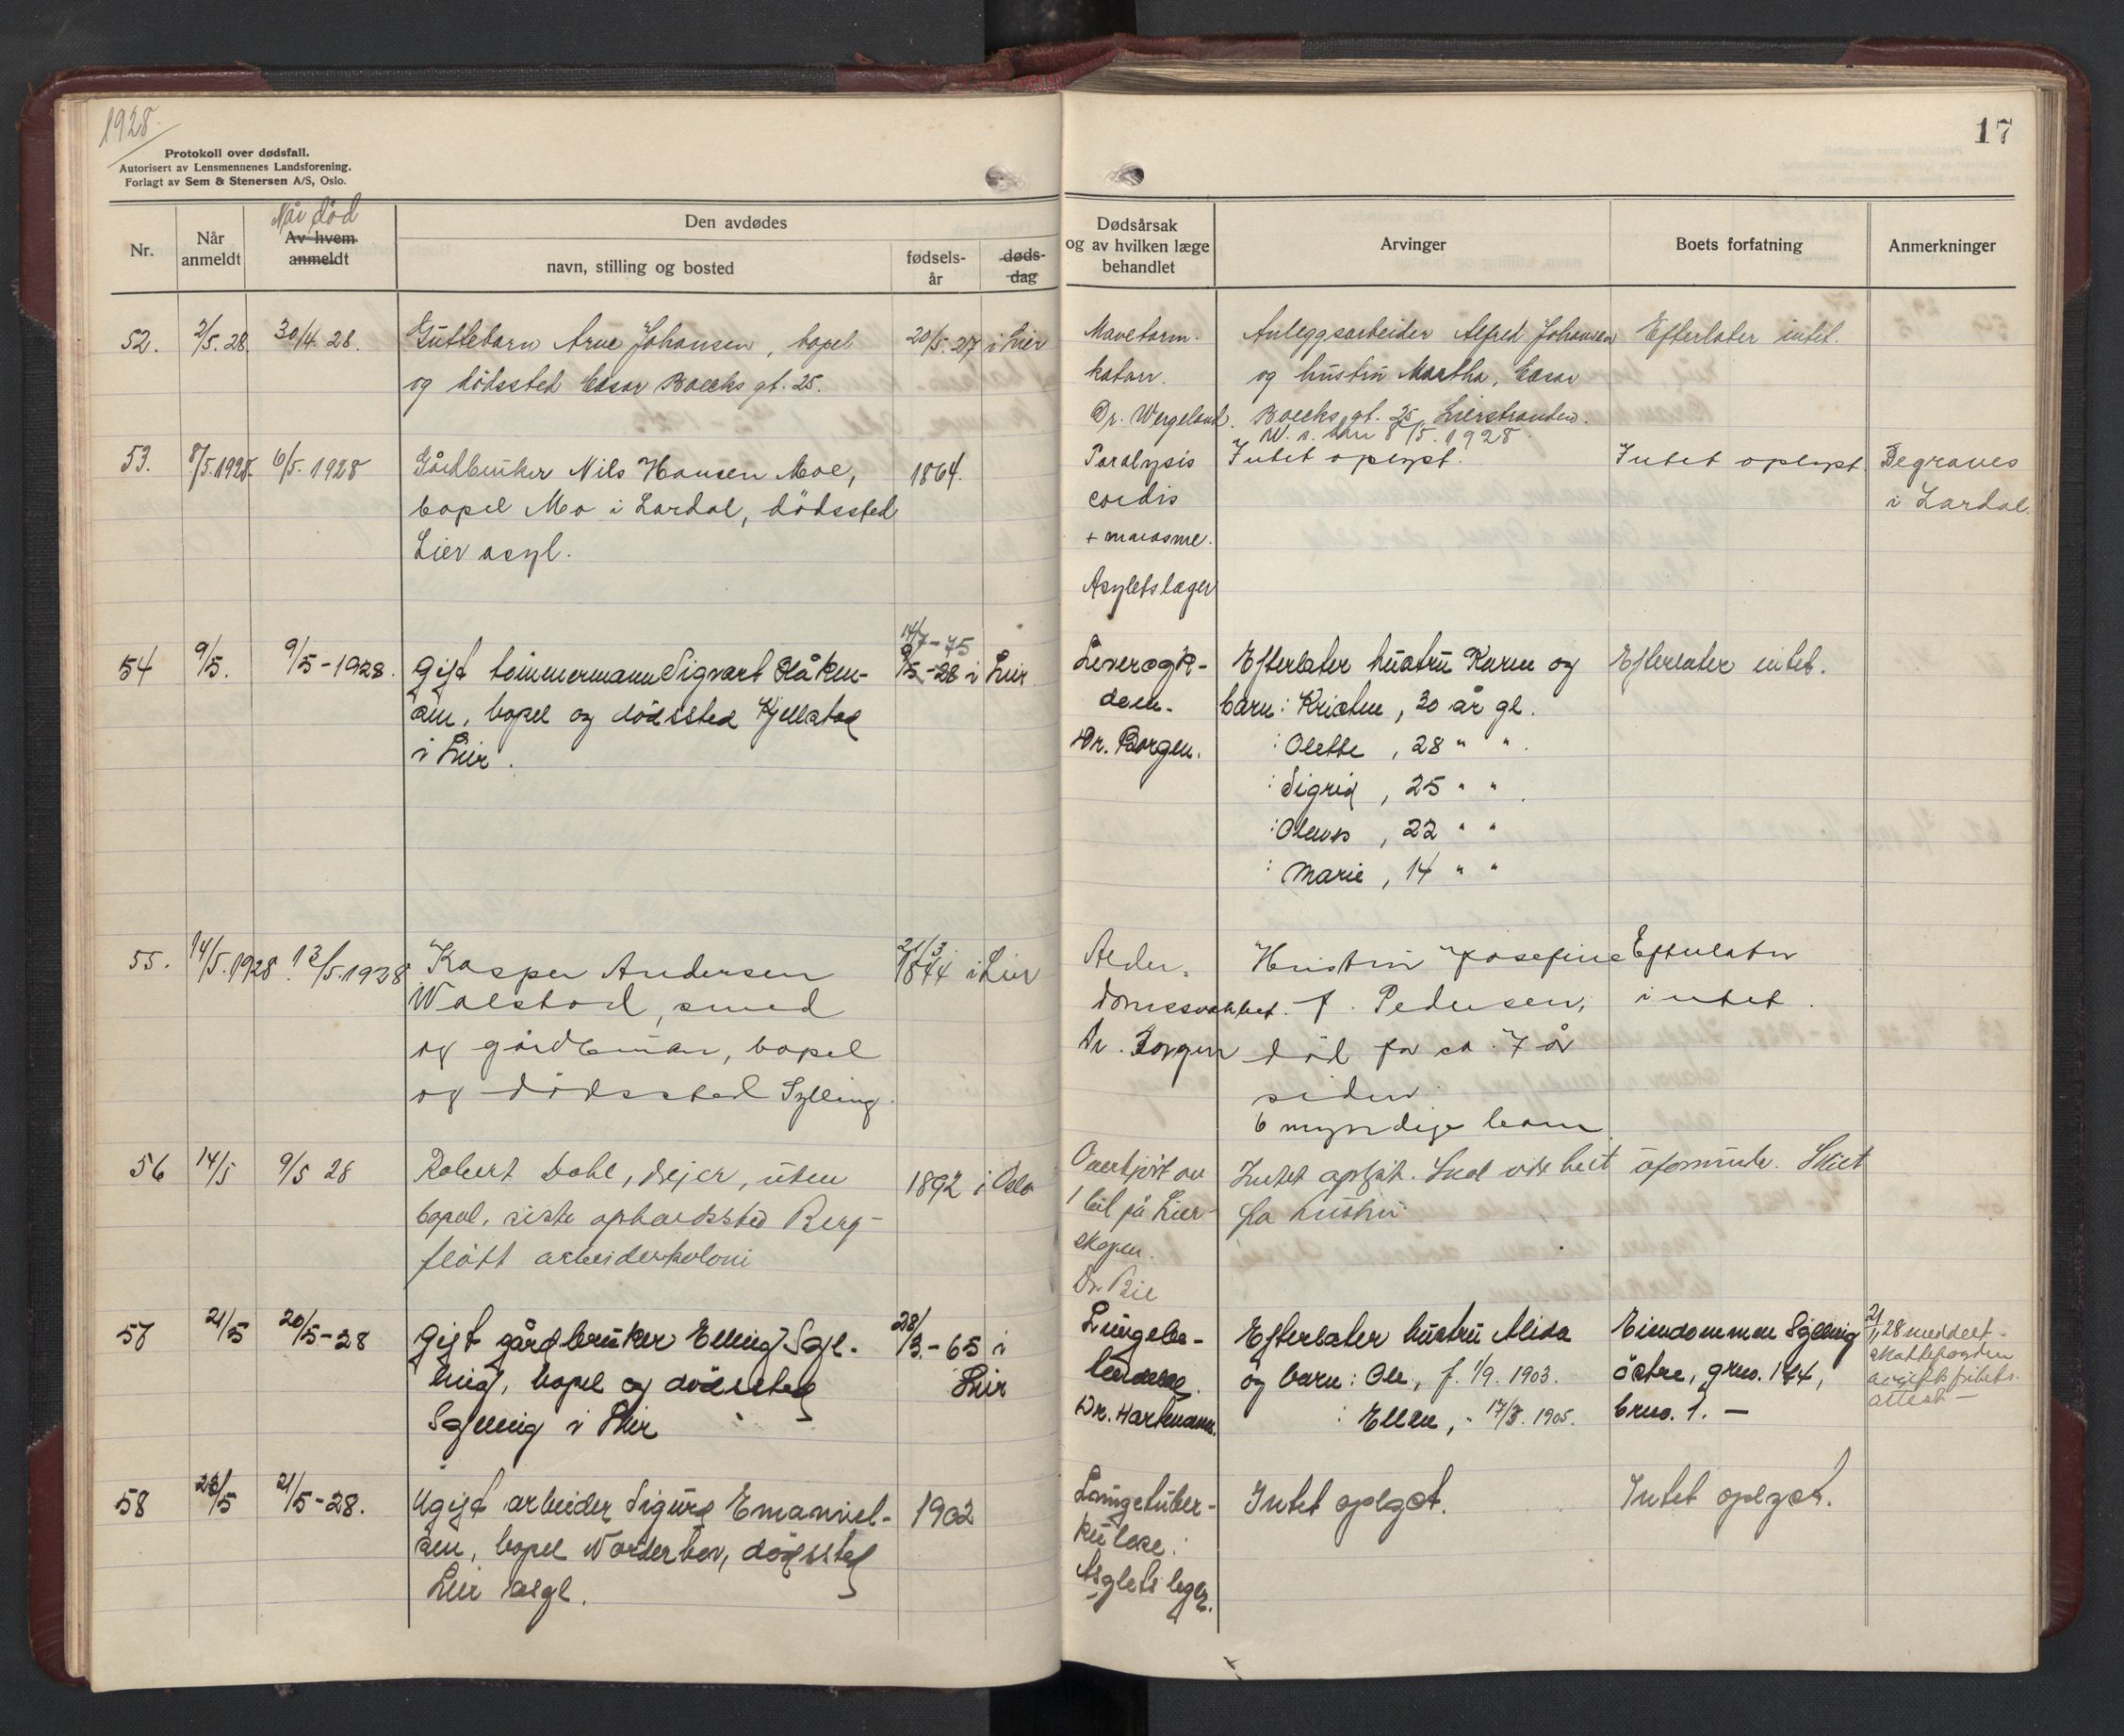 1928
Protokoll over dødsfall.
Autorisert av Lensmennenes Landsforening.
Forlagt av Sem & Stenersen A/S, Oslo.
17
Nr.
Når anmeldt
Når død
Av hvem anmeldt
Den avdødes
navn, stilling og bosted
fødsels-år
døds-dag
Dødsårsak og av hvilken læge behandlet
Arvinger
Boets forfatning
Anmerkninger
52. 2/5.28. 30/4 28. Guttebarn Arne Johansen, bopel 20/5.27 i Lier
og dødssted Cæsar Boecks gt. 25.
Mavetarm-
katarr.
Dr. Wergeland.
Anleggsarbeider Alfred Johansen
og hustru Martha, Cæsar
Boecks gt. 25, Lierstranden.
den 8/5.1928
Efterlater intet.
53. 8/5.1928. 6/5.1928 Gårdbruker Nils Hansen Moe, 1864.
bopel Mo i Lardal, dødssted
Lier asyl.
Paralysis
cordis
+ marasme.
Asylets læger
Intet oplyst.
Intet oplyst.
Begraves
i Lardal.
54 9/5. 9/5-1928. Gift tømmermann Sigvart Håken-
sen, bopel og dødssted Kjellstad
i Lier.
14/7-75
9/5-28 i Lier
Leversyk-
dom.
Dr. Borgen.
Efterlater hustru Karen og
barn: Kristine, 30 år gl.
: Olette, 28 " " .
: Sigrid, 25 " " .
: Olaus, 22 " "
: Marie, 14 " "
Efterlater intet.
55. 14/5.1928. 13/5.1928 Kasper Andersen 21/3 1844 i Lier
Walstad, smed
og gårdbruker, bopel
og dødssted Sylling.
Alder-
domssvakhet.
Dr. Borgen
Hustru Josefine
f. Pedersen,
død for ca. 7 år
siden.
6 myndige barn.
Efterlater
intet.
56 14/5 9/5 28 Robert Dahl, dejer, uten 1892 i Oslo
bopel, siste opholdssted Berg-
fløtt arbeiderkoloni
Overkjørt av
1 bil på Lier-
skogen.
Dr. Bie
Intet oplyst. Skal være helt uformuende. Skilt
fra hustru.
57 21/5 20/5-28 Gift gårdbruker Elling Syl- 28/3.-65 i
ling, bopel og dødssted Lier
Sylling i Lier
Lungebe-
tendelse.
Dr. Hartmann.
Efterlater hustru Alida
og barn: Ole, f. 1/9. 1903.
: Ellen, " 17/3. 1905.
Eiendommen Sylling
østre, grno. 144,
brno. 1. —
21/ 28 meddelt
skattefogden
avgiftsfrihets-
attest —
58 23/5 21/5-28. Ugift arbeider Sigurd Emanuel- 1902
sen, bopel Norderhov, dødssted
Lier asyl.
Lungetuber-
kulose.
Asylets leger.
Intet oplyst.
Intet oplyst.